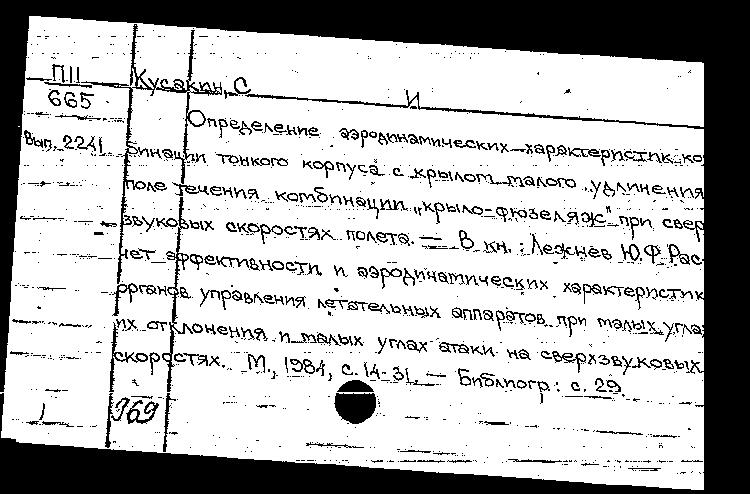 П11 Кусакин, С
665 И
Определение аэродинамических характеристик ко
Вып. 2241 бинации тонкого корпуса с крылом малого удлинения
поле течения комбинации „крыло-фюзеляж" при свер
звуковых скоростях полета. — В кн.: Лежнев Ю.Ф. Рас-
чет эффективности и аэродинамических характеристик
органов управления летательных аппаратов при малых угла
их отклонения и малых углах атаки на сверхзвуковых
скоростях. М., 1984, с. 14-31. — Библиогр: с. 29.
1 969